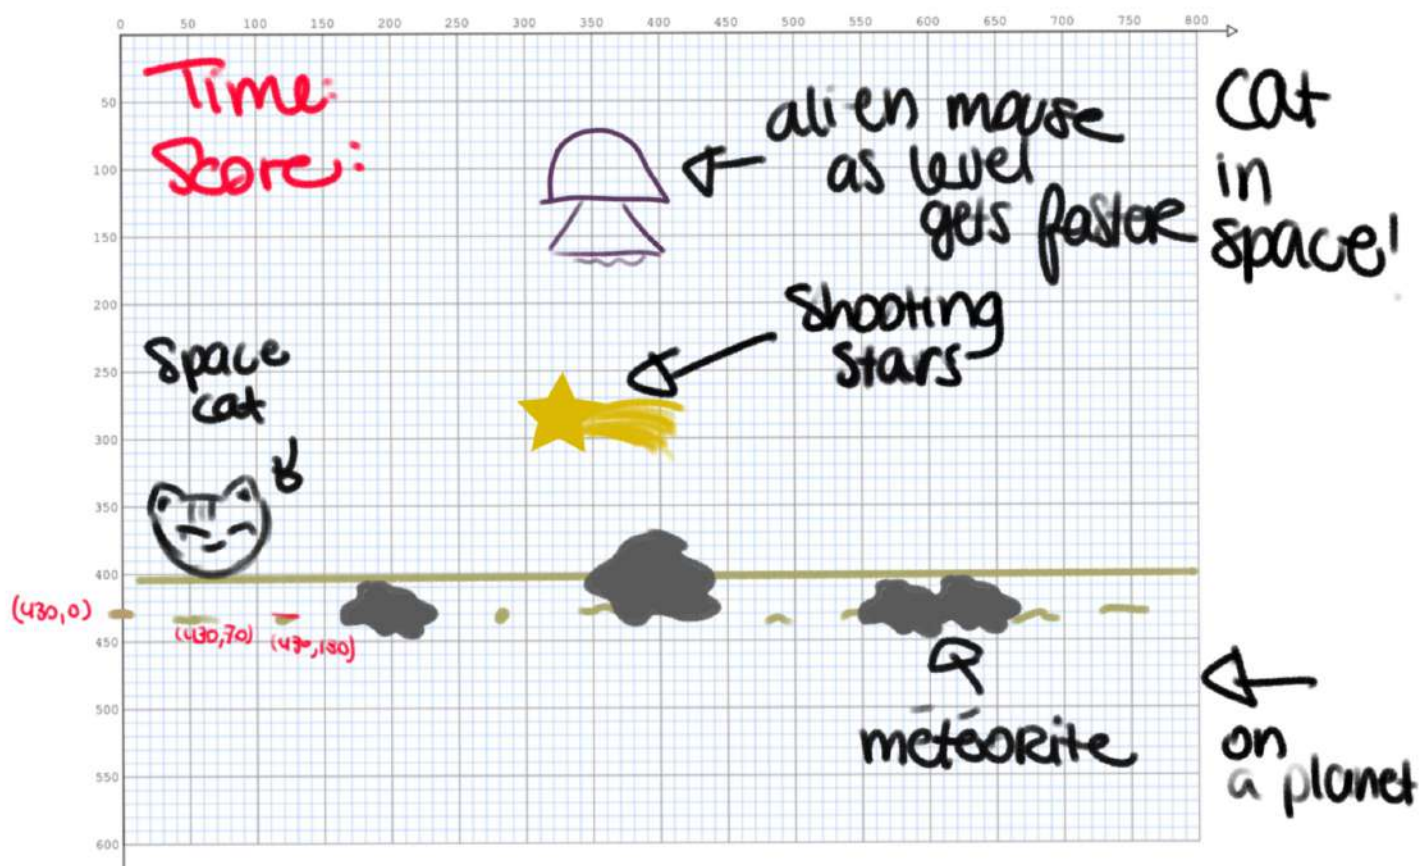 0 50 100 150 200 250 300 350 400 450 500 550 600 650 700 750 800
50
100
150
200
250
300
350
400
450
500
550
600
Time:
Score:
alien mouse
as level
gets faster
cat
in
space!
shooting
stars
space
cat
(430,0)
(430,70)
(430,180)
météorite
on
a planet